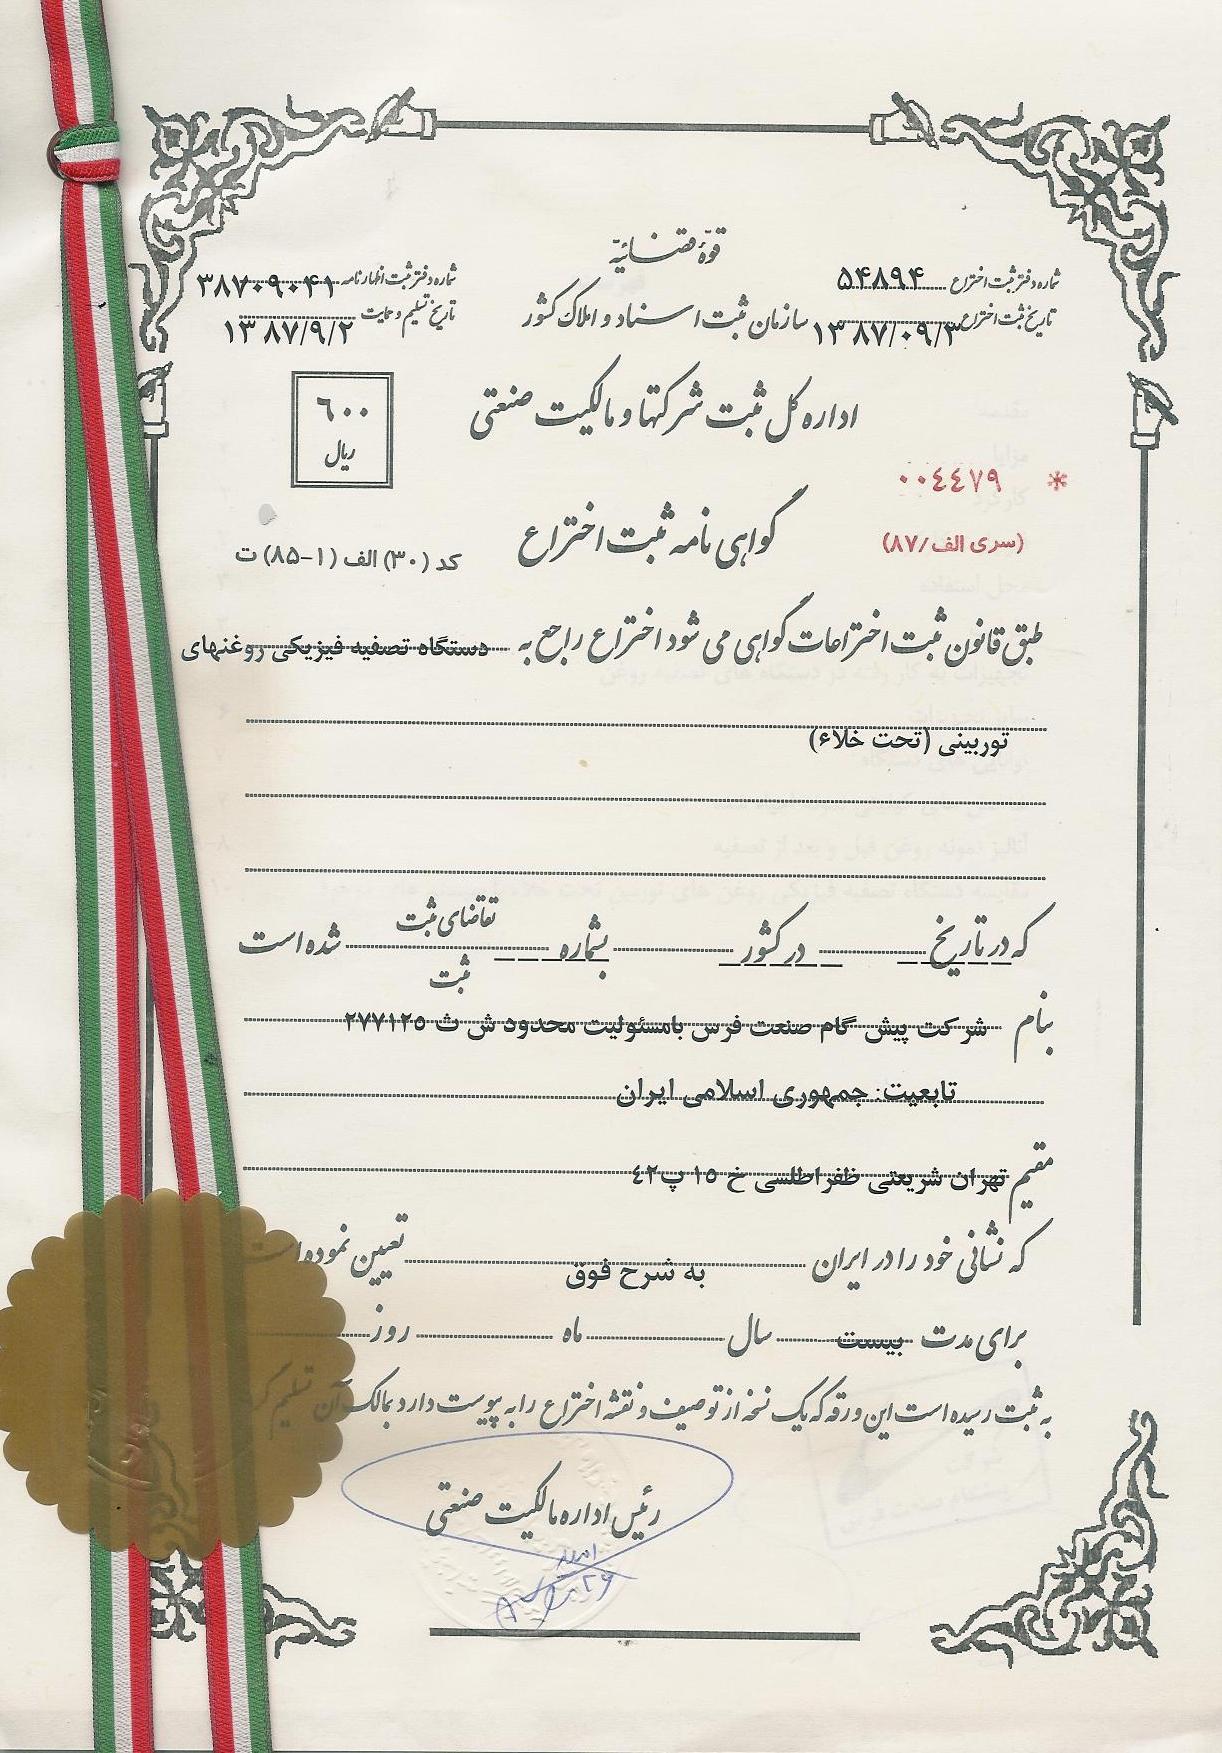 قوّهٔ قضائیّه
شماره دفتر ثبت اختراع ۵۴۸۹۴
شماره دفتر ثبت اظهارنامه ۳۸۷۰۹۰۴۱
سازمان ثبت اسناد و املاک کشور
تاریخ ثبت اختراع ۱۳۸۷/۰۹/۳
تاریخ تسلیم و حمایت ۱۳۸۷/۹/۲
اداره کل ثبت شرکتها و مالکیت صنعتی
۶۰۰
ریال
* ۰۰۴۴۷۹
گواهی نامه ثبت اختراع
(سری الف/۸۷)
کد (۳۰) الف (۱-۸۵) ت
طبق قانون ثبت اختراعات گواهی می شود اختراع راجع به دستگاه تصفیه فیزیکی روغنهای
توربینی (تحت خلاء)
که در تاریخ در کشور بشماره تقاضای ثبت شده است
ثبت
بنام شرکت پیش گام صنعت فرس بامسئولیت محدود ش ث ۲۷۷۱۲۵
تابعیت: جمهوری اسلامی ایران
مقیم تهران شریعتی ظفر اطلسی خ ۱۵ پ۴۲
که نشانی خود را در ایران به شرح فوق تعیین نموده است
برای مدت بیست سال ماه روز
به ثبت رسیده است این ورقه که یک نسخه از توصیف و نقشه اختراع را به پیوست دارد بمالک آن تسلیم
رئیس اداره مالکیت صنعتی